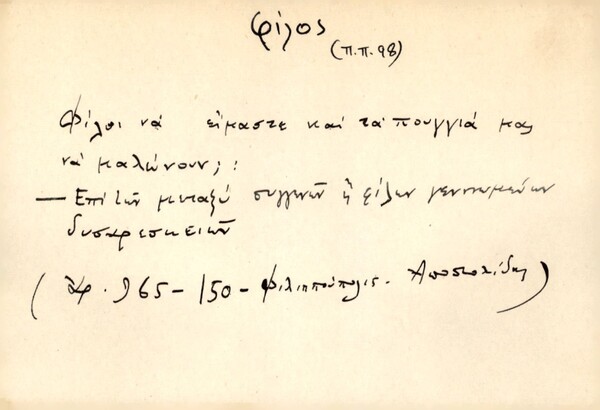 φίλος
(π.π. 98)
Φίλοι νά εἴμαστε καί τά πουγγιά μας
νά μαλώνουν; :
— Ἐπί τῶν μεταξύ συγγενῶν ἤ φίλων γεννωμένων
δυσαρεσκειῶν
( 965 - 150 - Φιλιππούπολις. Ἀποστολίδης )